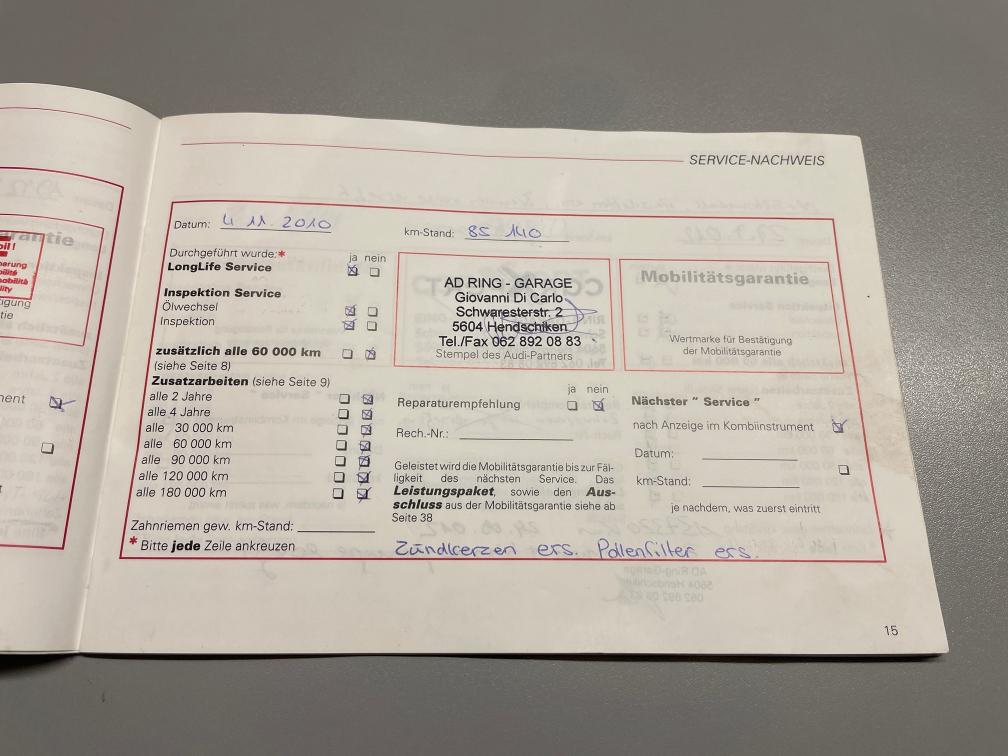 SERVICE-NACHWEIS
Datum: 4 11. 2010
km-Stand: 85 140
Durchgeführt wurde:*
ja nein
LongLife Service
Inspektion Service
Ölwechsel
Inspektion
zusätzlich alle 60 000 km
(siehe Seite 8)
Zusatzarbeiten (siehe Seite 9)
alle 2 Jahre
alle 4 Jahre
alle 30 000 km
alle 60 000 km
alle 90 000 km
alle 120 000 km
alle 180 000 km
Zahnriemen gew. km-Stand:
* Bitte jede Zeile ankreuzen
AD RING - GARAGE
Giovanni Di Carlo
Schwaresterstr. 2
5604 Hendschiken
Tel./Fax 062 892 08 83
Stempel des Audi-Partners
ja nein
Reparaturempfehlung
Rech.-Nr.:
Geleistet wird die Mobilitätsgarantie bis zur Fäl-
ligkeit des nächsten Service. Das
Leistungspaket, sowie den Aus-
schluss aus der Mobilitätsgarantie siehe ab
Seite 38
Zündkerzen ers. Pollenfilter ers.
Mobilitätsgarantie
Wertmarke für Bestätigung
der Mobilitätsgarantie
Nächster " Service "
nach Anzeige im Kombiinstrument
Datum:
km-Stand:
je nachdem, was zuerst eintritt
15